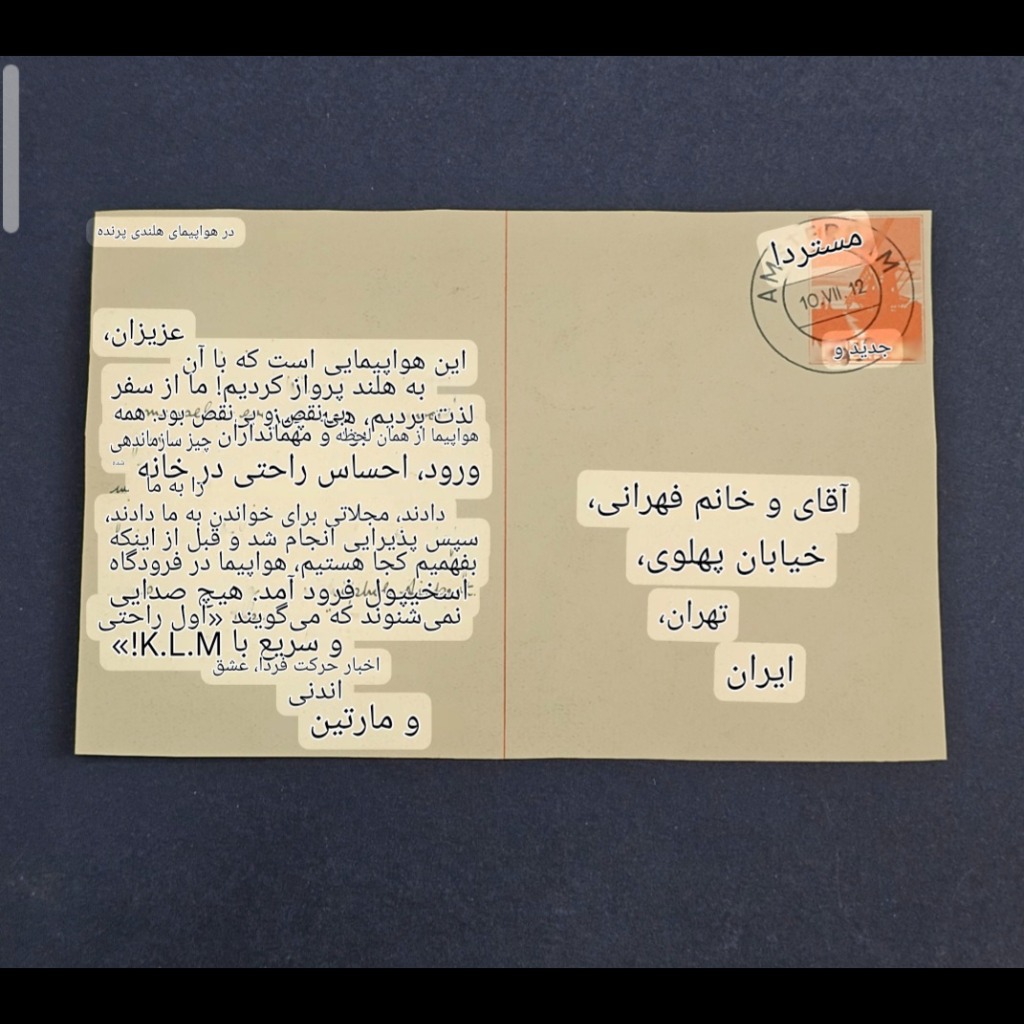 در هواپیمای هلندی پرنده
عزیزان،
این هواپیمایی است که با آن
به هلند پرواز کردیم! ما از سفر
لذت بردیم، بی‌نقص و بی نقص بود. همه
هواپیما از همان لحظه و مهمانداران چیز سازماندهی
شده
ورود، احساس راحتی در خانه
را به ما
دادند، مجلاتی برای خواندن به ما دادند،
سپس پذیرایی انجام شد و قبل از اینکه
بفهمیم کجا هستیم، هواپیما در فرودگاه
اسخیپول فرود آمد. هیچ صدایی
نمی‌شنوند که می‌گویند «اول راحتی
و سریع با K.L.M!»
اخبار حرکت فردا، عشق
اندنی
و مارتین
مستردا
AMSTERDAM
10.VII.12
جدید و
آقای و خانم فهرانی،
خیابان پهلوی،
تهران،
ایران